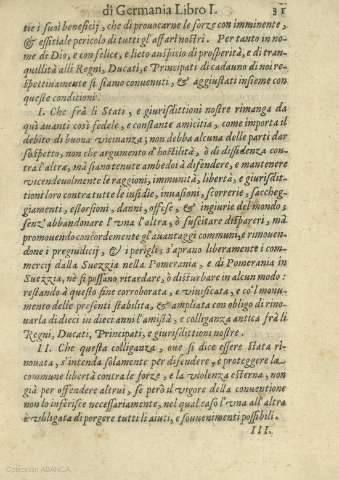 di Germania Libro I. 31
tie i suoi beneficij, che di prouocarne le forze con imminente,
& essitiale pericolo di tutti gl'affari nostri. Per tanto in no
me di Dio, e con felice, e lieto auspicio di prosperità, e di tran-
quillità alli Regni, Ducati, e Principati di cadauno di noi re-
spettiuamente si siamo conuenuti, & aggiustati insieme con
queste condizioni.
I. Che frà li Stati, e giurisdittioni nostre rimanga da
quì auanti così fedele, e constante amicitia, come importa il
debito di buona vicinanza; non debba alcuna delle parti dar
sospetto, non che argomento d'hostilità, ò di diffidenza con-
tra l'altra, mà sia no tenute ambedoi à difendere, e mantenere
vicendeuolmente le raggioni, immunità, libertà, e giurisdit-
tioni loro contra tutte le insidie, inuasioni, scorrerie, saccheg-
giamenti, estorsioni, danni, offise, & ingiurie del mondo;
senz' abbandonare l'vna l'altra, ò suscitare dispareri, mà
promouendo concordemente gl'auantaggi communi, e rimouen-
done i pregiudicij, & i perigli; s'aprano liberamente i com-
mercij dalla Suezzia nella Pomerania, e di Pomerania in
Suezzia, nè si possano ritardare, ò disturbare in alcun modo:
restando à questo fine corroborata, e viuificata, e co'l monu-
mento delle presenti stabilita, & ampliata con obligo di rino-
uarla di dieci in dieci anni l'amistà, e colliganza antica frà li
Regni, Ducati, Principati, e giurisdittioni nostre.
II. Che questa colliganza, oue si dice essere stata ri-
nouata, s'intenda solamente per difendere, e proteggere la
commune libertà contra le forze, e la violenza esterna, non
già per offendere altrui, se però il vigore della conuentione
non lo inferisce necessariamente, nel qual caso l'vna all'altra
è vbligata di porgere tutti li aiuti, e souuenimenti possibili.
III.
Colección ABANCA